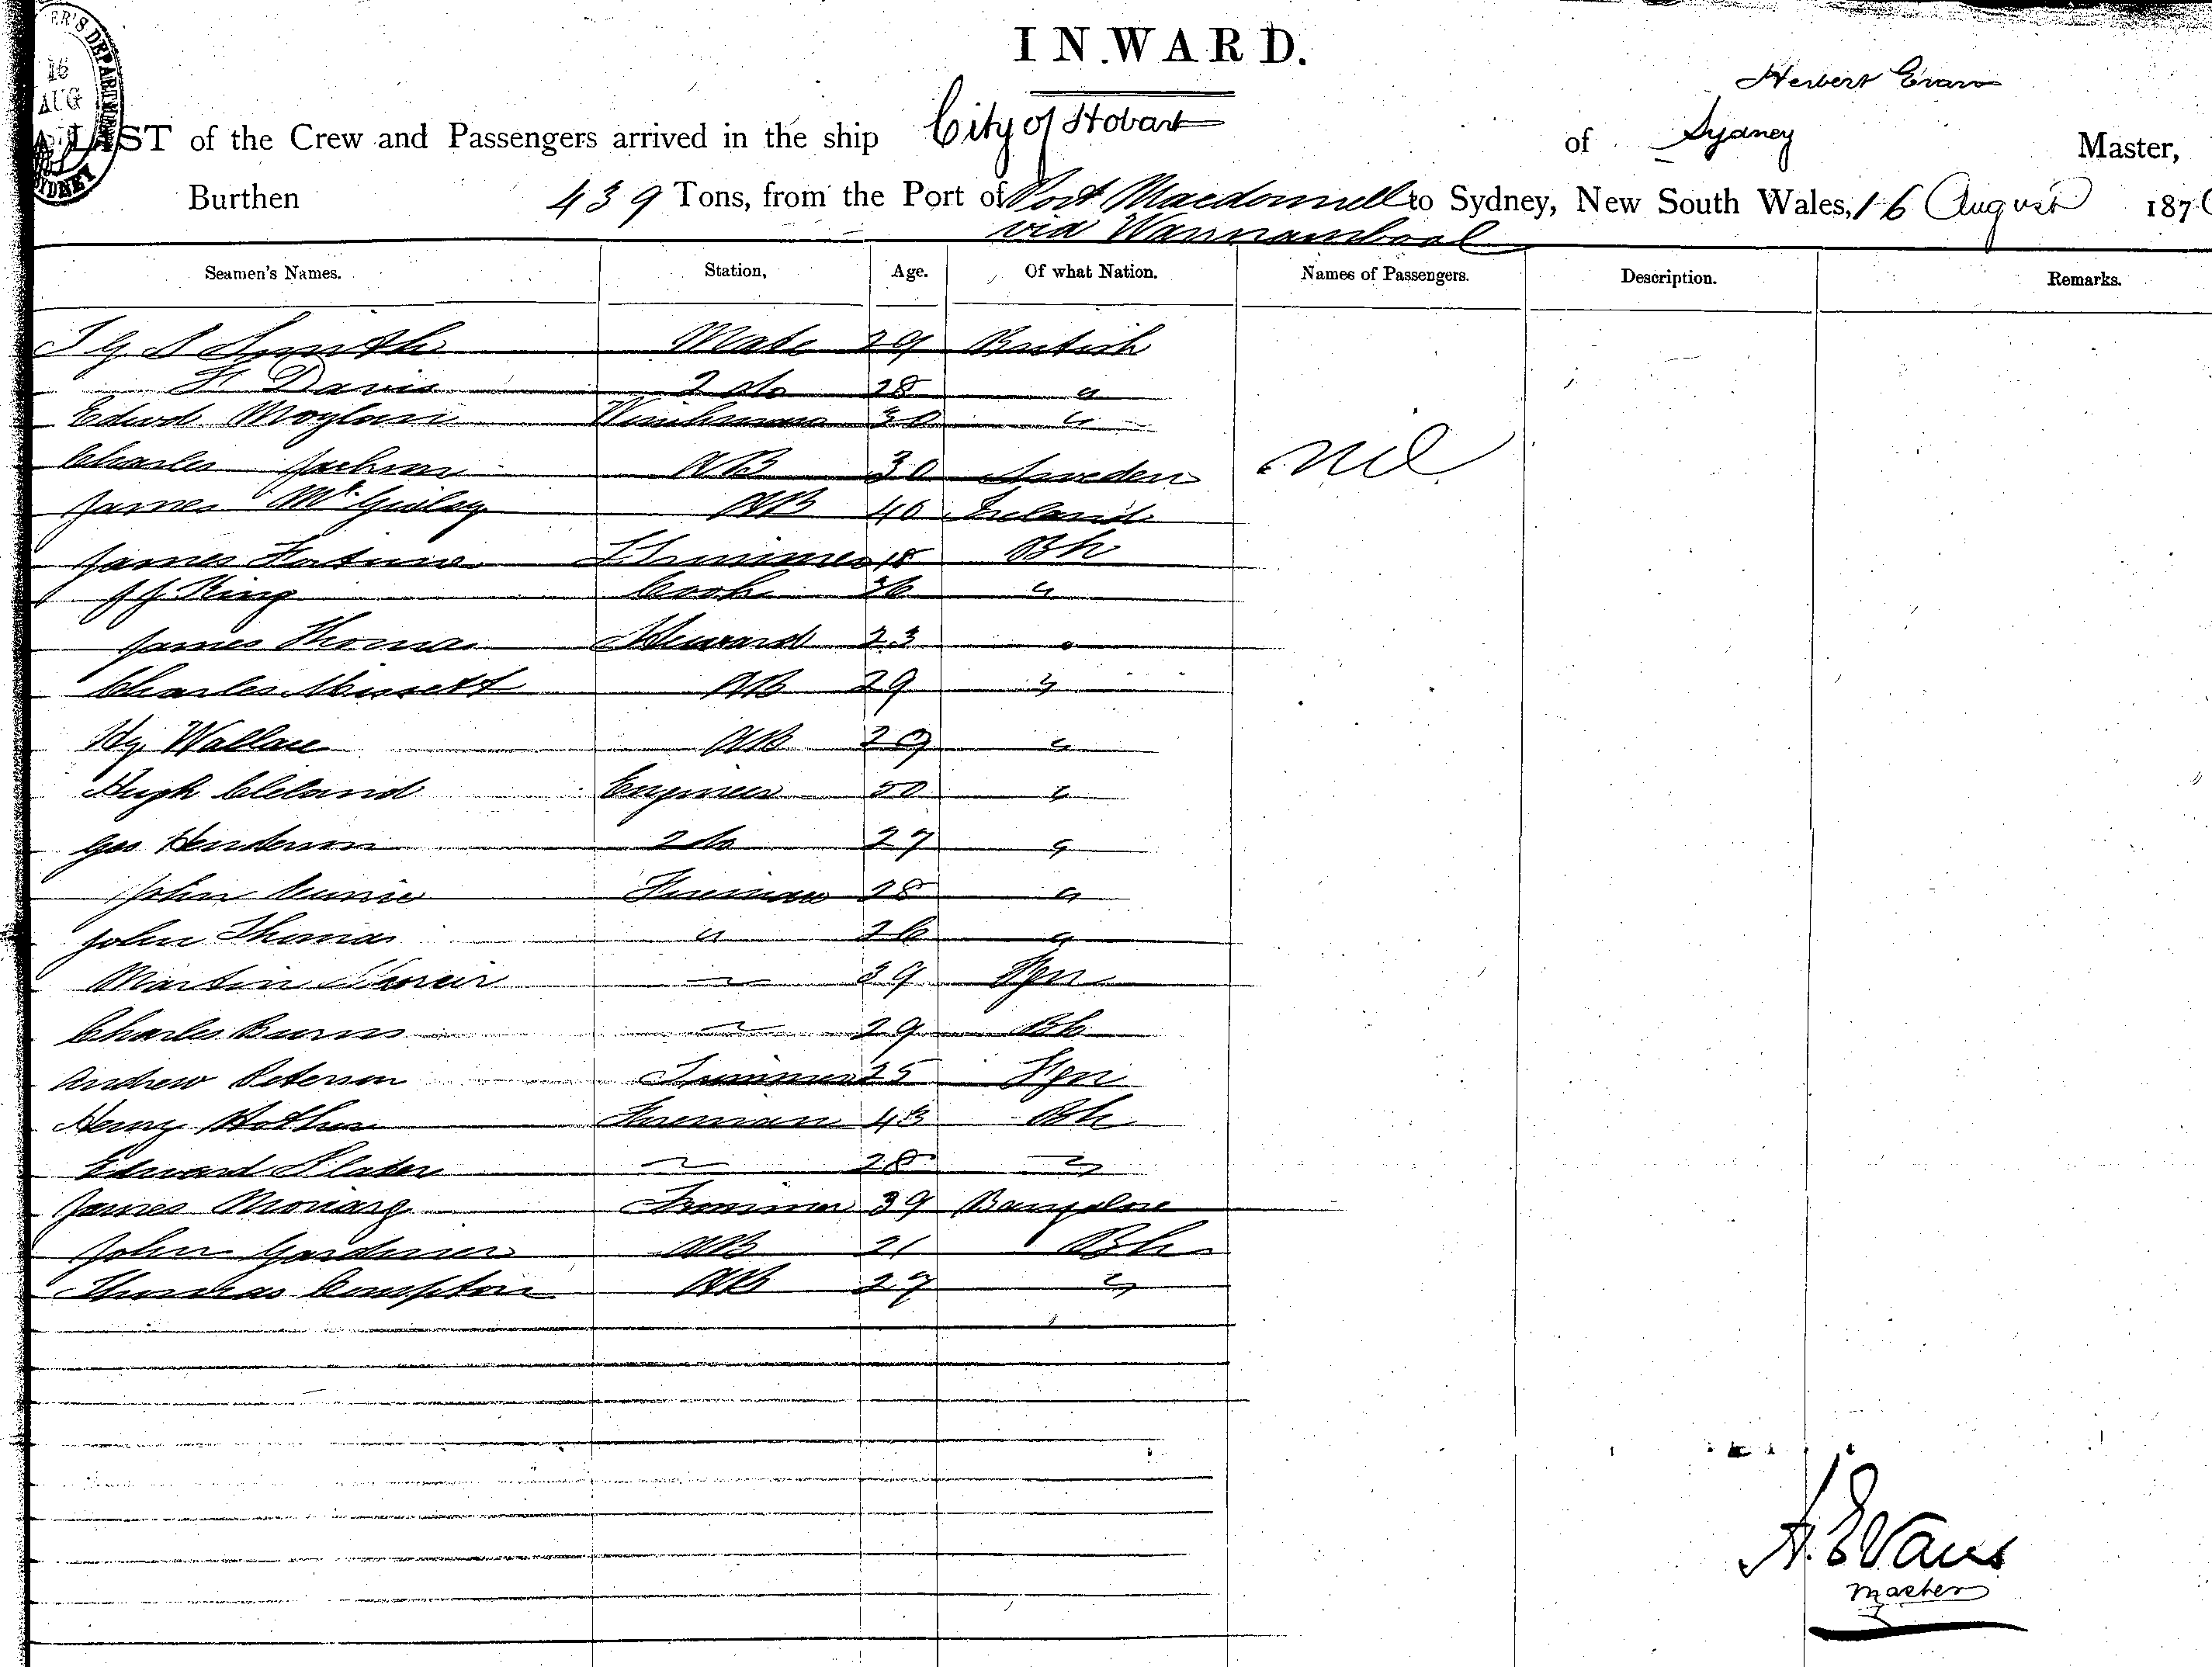 INWARD.
ER'S DEPARTMENT
16
AUG
SYDNEY
Herbert Evans
A LIST of the Crew and Passengers arrived in the ship City of Hobart of Sydney Master,
Burthen 439 Tons, from the Port of Port Macdonnell to Sydney, New South Wales, 16 August 187
via Warrnambool
Seamen's Names. Station, Age. Of what Nation. Names of Passengers. Description. Remarks.
Smith Mate 29 British
F Davis 2 do 28 "
Edwd Moylan 30 "
Charles Jackson AB 30 Sweden nil
James AB 40 Ireland
James Fortune Trimmer 18 Bh
J J King Cook 36 "
James Thomas Steward 23 "
Charles Missett AB 29 "
Hy Wallace AB 29 "
Hugh Cleland Engineer 50 "
Geo Henderson 2 do 27 "
John Fireman 28 "
John Thomas " 26 "
Martin " 39 Fgn
Charles Burns " 29 Bh
Andrew Peterson Trimmer 25 Fgn
Henry Fireman 43 Bh
Edward Slater " 28 "
James Trimmer 39 Bangalore
John Gardiner AB 21 Bh
Thomas Compton AB 27 "
H. Evans
master